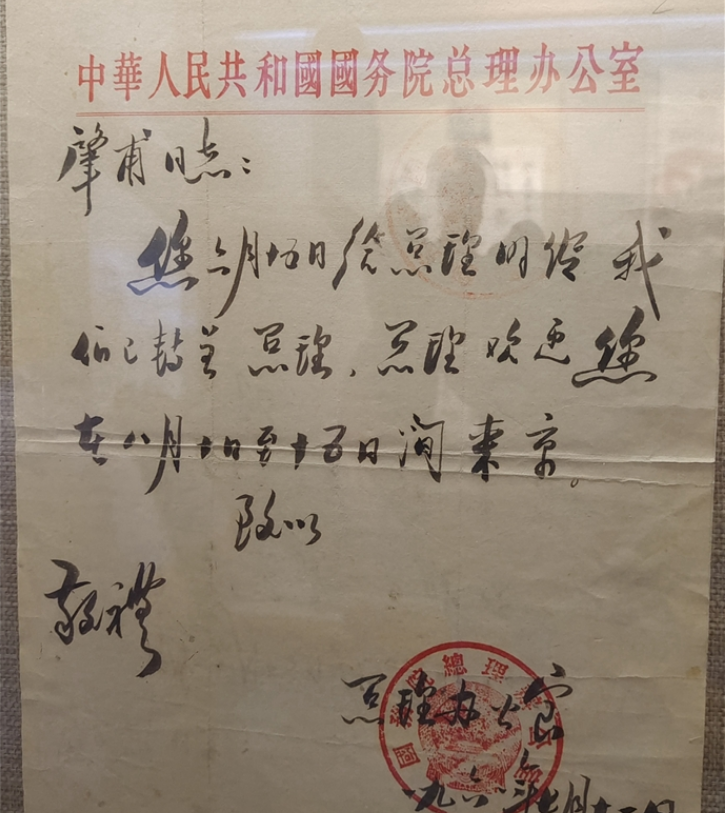 中華人民共和國國务院总理办公室
肇甫同志：
您六月十五日给总理的信我
们已转呈总理，总理欢迎您
在八月十日至十五日间来京。
致以
敬禮
總理
总理办公室
一九六一年七月十二日